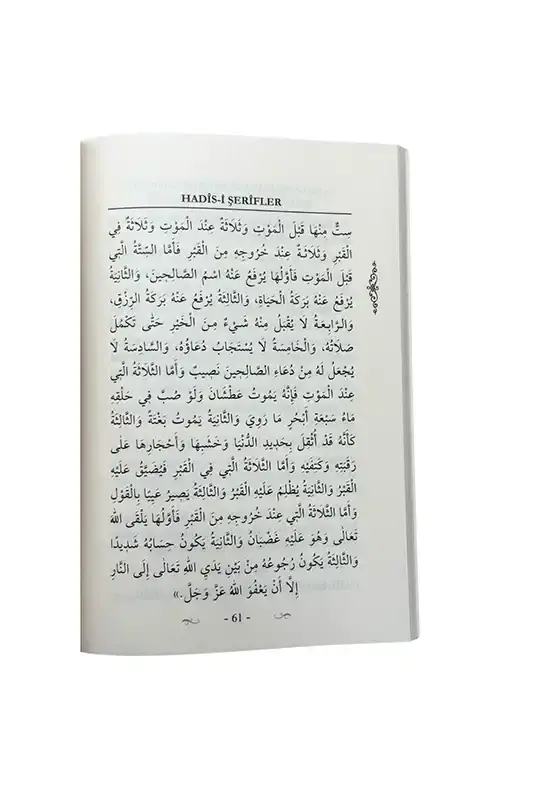 HADÎS-İ ŞERÎFLER
سِتٌّ مِنْهَا قَبْلَ الْمَوْتِ وَثَلَاثَةٌ عِنْدَ الْمَوْتِ وَثَلَاثَةٌ فِي
الْقَبْرِ وَثَلَاثَةٌ عِنْدَ خُرُوجِهِ مِنَ الْقَبْرِ فَأَمَّا السِّتَّةُ الَّتِي
قَبْلَ الْمَوْتِ فَأَوَّلُهَا يُرْفَعُ عَنْهُ اسْمُ الصَّالِحِينَ، وَالثَّانِيَةُ
يُرْفَعُ عَنْهُ بَرَكَةُ الْحَيَاةِ، وَالثَّالِثَةُ يُرْفَعُ عَنْهُ بَرَكَةُ الرِّزْقِ،
وَالرَّابِعَةُ لَا يُقْبَلُ مِنْهُ شَيْءٌ مِنَ الْخَيْرِ حَتَّى تَكْمُلَ
صَلَاتُهُ، وَالْخَامِسَةُ لَا يُسْتَجَابُ دُعَاؤُهُ، وَالسَّادِسَةُ لَا
يُجْعَلُ لَهُ مِنْ دُعَاءِ الصَّالِحِينَ نَصِيبٌ وَأَمَّا الثَّلَاثَةُ الَّتِي
عِنْدَ الْمَوْتِ فَإِنَّهُ يَمُوتُ عَطْشَانَ وَلَوْ صُبَّ فِي حَلْقِهِ
مَاءُ سَبْعَةِ أَبْحُرٍ مَا رَوِيَ وَالثَّانِيَةُ يَمُوتُ بَغْتَةً وَالثَّالِثَةُ
كَأَنَّهُ قَدْ أُثْقِلَ بِحَدِيدِ الدُّنْيَا وَخَشَبِهَا وَأَحْجَارِهَا عَلَى
رَقَبَتِهِ وَكَتِفَيْهِ وَأَمَّا الثَّلَاثَةُ الَّتِي فِي الْقَبْرِ فَيُضَيَّقُ عَلَيْهِ
الْقَبْرُ وَالثَّانِيَةُ يُظْلِمُ عَلَيْهِ الْقَبْرُ وَالثَّالِثَةُ يَصِيرُ عَيِيًا بِالْقَوْلِ
وَأَمَّا الثَّلَاثَةُ الَّتِي عِنْدَ خُرُوجِهِ مِنَ الْقَبْرِ فَأَوَّلُهَا يَلْقَى اللهَ
تَعَالٰى وَهُوَ عَلَيْهِ غَضْبَانُ وَالثَّانِيَةُ يَكُونُ حِسَابُهُ شَدِيدًا
وَالثَّالِثَةُ يَكُونُ رُجُوعُهُ مِنْ بَيْنِ يَدَيِ اللهِ تَعَالٰى إِلَى النَّارِ
إِلَّا أَنْ يَعْفُوَ اللهُ عَزَّ وَجَلَّ.»
- 61 -